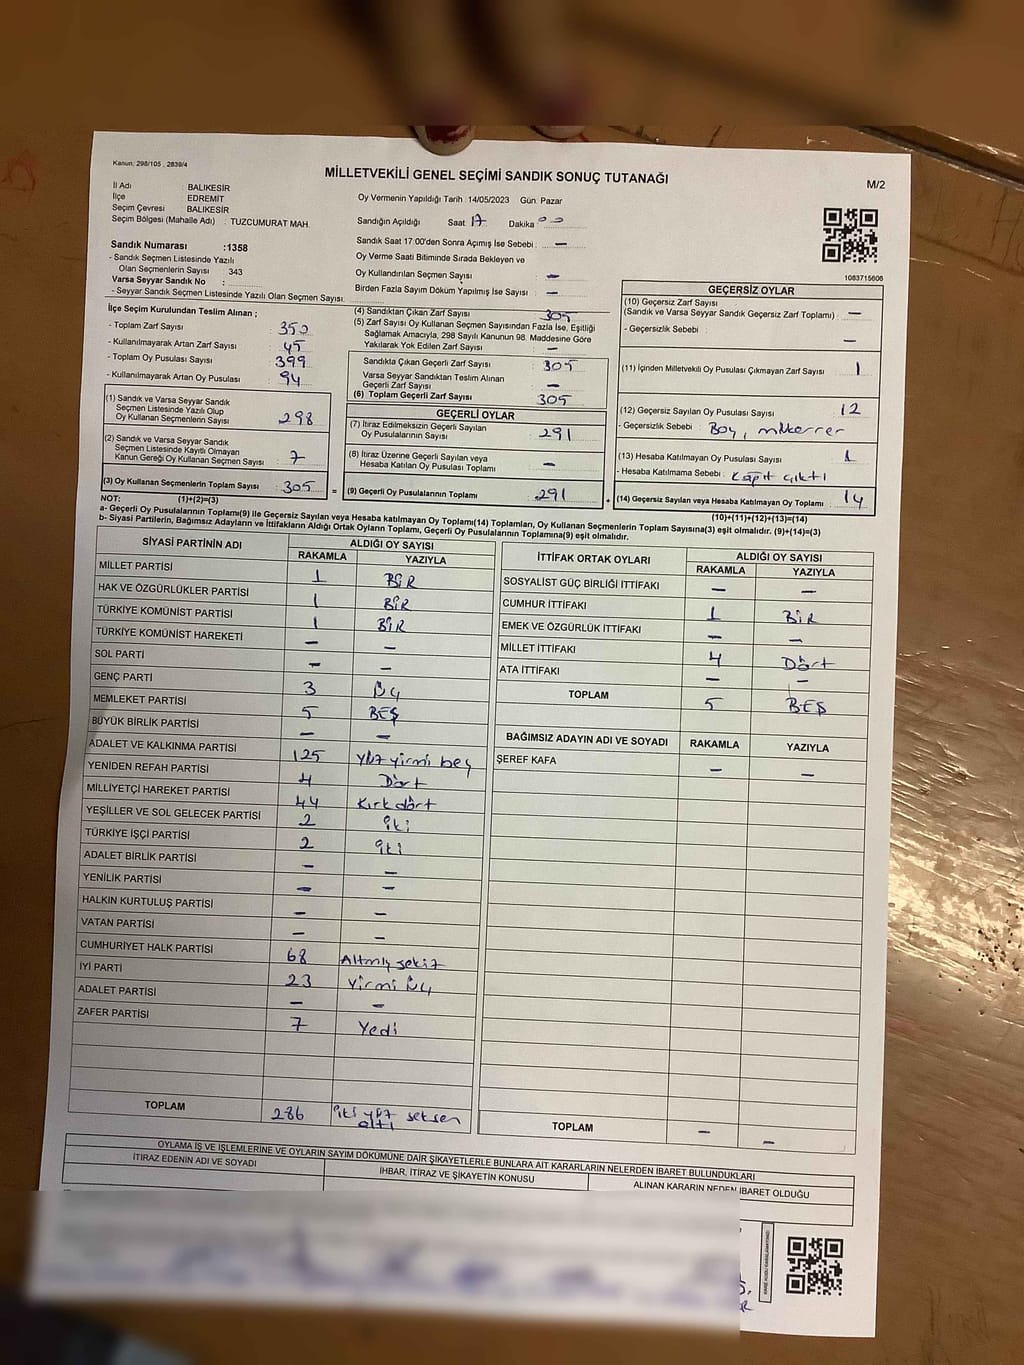 Kanun: 298/105 , 2839/4
MİLLETVEKİLİ GENEL SEÇİMİ SANDIK SONUÇ TUTANAĞI
M/2
İl Adı : BALIKESİR
İlçe EDREMİT
Seçim Çevresi BALIKESİR
Seçim Bölgesi (Mahalle Adı) : TUZCUMURAT MAH.
Oy Vermenin Yapıldığı Tarih :14/05/2023 Gün: Pazar
Sandığın Açıldığı Saat 17 Dakika 00
Sandık Saat 17:00'den Sonra Açımış İse Sebebi : —
Oy Verme Saati Bitiminde Sırada Bekleyen ve
Oy Kullandırılan Seçmen Sayısı : —
Birden Fazla Sayım Döküm Yapılmış İse Sayısı : —
Sandık Numarası :1358
- Sandık Seçmen Listesinde Yazılı
Olan Seçmenlerin Sayısı : 343
Varsa Seyyar Sandık No :
- Seyyar Sandık Seçmen Listesinde Yazılı Olan Seçmen Sayısı:
1083715606
İlçe Seçim Kurulundan Teslim Alınan ;
- Toplam Zarf Sayısı : 350
- Kullanılmayarak Artan Zarf Sayısı : 45
- Toplam Oy Pusulası Sayısı : 399
- Kullanılmayarak Artan Oy Pusulası : 94
(1) Sandık ve Varsa Seyyar Sandık
Seçmen Listesinde Yazılı Olup
Oy Kullanan Seçmenlerin Sayısı : 298
(2) Sandık ve Varsa Seyyar Sandık
Seçmen Listesinde Kayıtlı Olmayan
Kanun Gereği Oy Kullanan Seçmen Sayısı : 7
(3) Oy Kullanan Seçmenlerin Toplam Sayısı : 305
(4) Sandıktan Çıkan Zarf Sayısı : 305
(5) Zarf Sayısı Oy Kullanan Seçmen Sayısından Fazla İse, Eşitliği
Sağlamak Amacıyla, 298 Sayılı Kanunun 98. Maddesine Göre
Yakılarak Yok Edilen Zarf Sayısı : —
Sandıkta Çıkan Geçerli Zarf Sayısı : 305
Varsa Seyyar Sandıktan Teslim Alınan
Geçerli Zarf Sayısı : —
(6) Toplam Geçerli Zarf Sayısı : 305
GEÇERLİ OYLAR
(7) İtiraz Edilmeksizin Geçerli Sayılan
Oy Pusulalarının Sayısı : 291
(8) İtiraz Üzerine Geçerli Sayılan veya
Hesaba Katılan Oy Pusulası Toplamı : —
= (9) Geçerli Oy Pusulalarının Toplamı : 291 +
GEÇERSİZ OYLAR
(10) Geçersiz Zarf Sayısı
(Sandık ve Varsa Seyyar Sandık Geçersiz Zarf Toplamı) : —
- Geçersizlik Sebebi : —
(11) İçinden Milletvekili Oy Pusulası Çıkmayan Zarf Sayısı : 1
(12) Geçersiz Sayılan Oy Pusulası Sayısı : 12
- Geçersizlik Sebebi : Boş, mükerrer
(13) Hesaba Katılmayan Oy Pusulası Sayısı : 1
- Hesaba Katılmama Sebebi : çıktı
(14) Geçersiz Sayılan veya Hesaba Katılmayan Oy Toplamı : 14
NOT: (1)+(2)=(3) (10)+(11)+(12)+(13)=(14)
a- Geçerli Oy Pusulalarının Toplamı(9) ile Geçersiz Sayılan veya Hesaba katılmayan Oy Toplamı(14) Toplamları, Oy Kullanan Seçmenlerin Toplam Sayısına(3) eşit olmalıdır. (9)+(14)=(3)
b- Siyasi Partilerin, Bağımsız Adayların ve İttifakların Aldığı Ortak Oyların Toplamı, Geçerli Oy Pusulalarının Toplamına(9) eşit olmalıdır.
SİYASİ PARTİNİN ADI ALDIĞI OY SAYISI
RAKAMLA YAZIYLA
MİLLET PARTİSİ 1 BİR
HAK VE ÖZGÜRLÜKLER PARTİSİ 1 BİR
TÜRKİYE KOMÜNİST PARTİSİ 1 BİR
TÜRKİYE KOMÜNİST HAREKETİ — —
SOL PARTİ — —
GENÇ PARTİ 3 Üç
MEMLEKET PARTİSİ 5 BEŞ
BÜYÜK BİRLİK PARTİSİ — —
ADALET VE KALKINMA PARTİSİ 125 yüz yirmi beş
YENİDEN REFAH PARTİSİ 4 Dört
MİLLİYETÇİ HAREKET PARTİSİ 44 Kırk dört
YEŞİLLER VE SOL GELECEK PARTİSİ 2 iki
TÜRKİYE İŞÇİ PARTİSİ 2 iki
ADALET BİRLİK PARTİSİ — —
YENİLİK PARTİSİ — —
HALKIN KURTULUŞ PARTİSİ — —
VATAN PARTİSİ — —
CUMHURİYET HALK PARTİSİ 68 Altmış sekiz
İYİ PARTİ 23 Yirmi üç
ADALET PARTİSİ — —
ZAFER PARTİSİ 7 Yedi
TOPLAM 286 iki yüz seksen
altı
İTTİFAK ORTAK OYLARI ALDIĞI OY SAYISI
RAKAMLA YAZIYLA
SOSYALİST GÜÇ BİRLİĞİ İTTİFAKI — —
CUMHUR İTTİFAKI 1 BİR
EMEK VE ÖZGÜRLÜK İTTİFAKI — —
MİLLET İTTİFAKI 4 Dört
ATA İTTİFAKI — —
TOPLAM 5 BEŞ
BAĞIMSIZ ADAYIN ADI VE SOYADI RAKAMLA YAZIYLA
ŞEREF KAFA — —
TOPLAM — —
OYLAMA İŞ VE İŞLEMLERİNE VE OYLARIN SAYIM DÖKÜMÜNE DAİR ŞİKAYETLERLE BUNLARA AİT KARARLARIN NELERDEN İBARET BULUNDUKLARI
İTİRAZ EDENİN ADI VE SOYADI İHBAR, İTİRAZ VE ŞİKAYETİN KONUSU ALINAN KARARIN NEDEN İBARET OLDUĞU